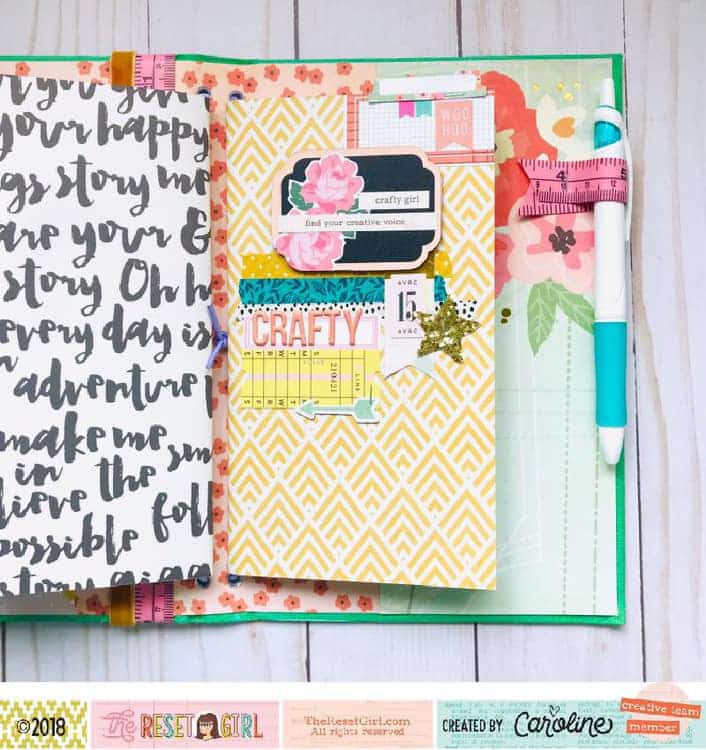 your happy
gs story me
are your &
story Oh h
every day is
adventure
make me sm
in the
lieve the foll
possible
story gigg
WOO
HOO
crafty girl
find your creative voice
AVRC
15
AVRC
CRAFTY
S M T W T F S
210421
LINE
4 5
©2018
The RESET GIRL
TheResetGirl.com
All rights reserved
CREATED BY Caroline
creative team
member